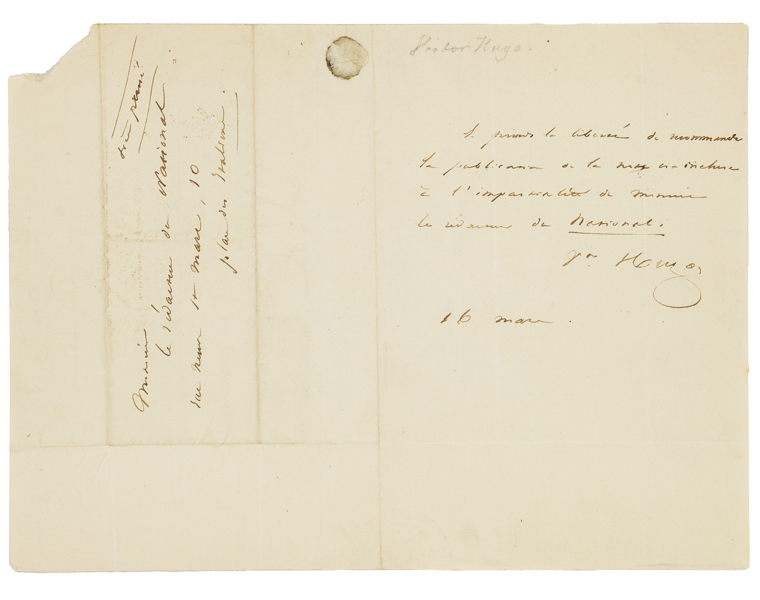 Victor Hugo.
Je prends la liberté de recommander
la publication de la note ci-incluse
à l'impartialité de monsieur
le rédacteur du National.
Vor Hugo
16 mars.
très pressé
Monsieur
le rédacteur du National
rue neuve St marc, 10
place des italiens.